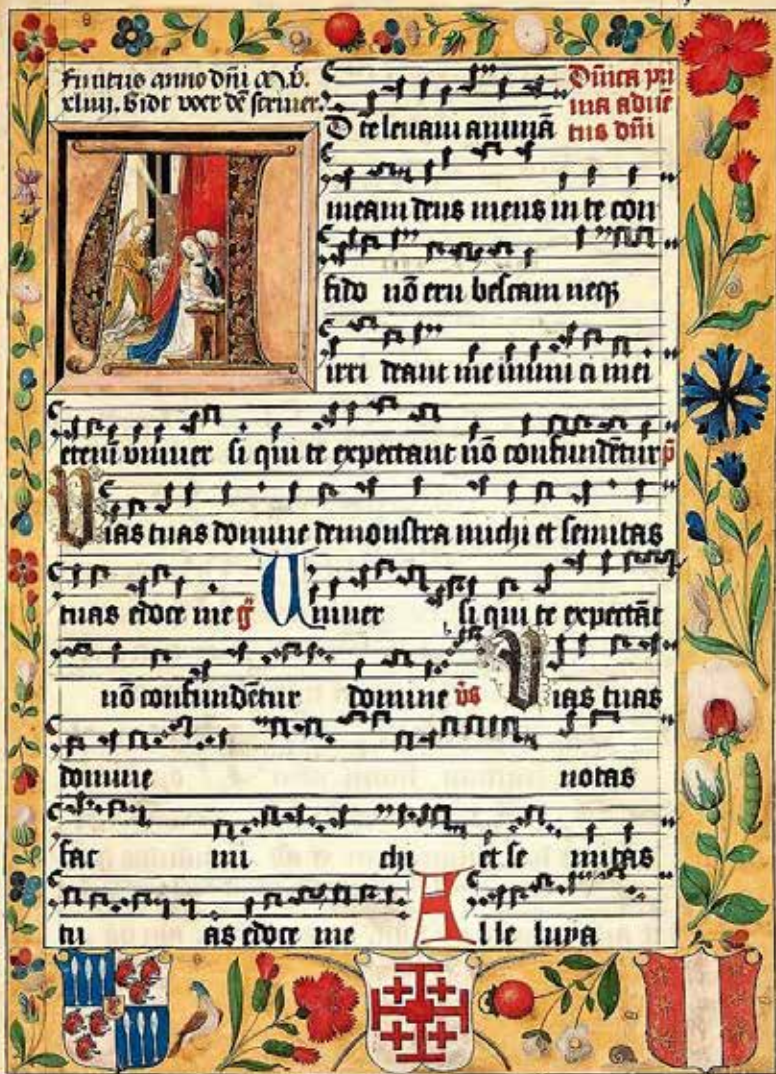 Finitus anno dñi M.v̊.
xliiij. Bidt voer dē scriuer.
Dñica pri
ma aduē
tus dñi
AD te leuaui animā
meam deus meus in te con
fido nō eru bescam neqꝫ
irri deant me inimi ci mei
etenī vniuer si qui te expectant nō confundētur p̄
Vias tuas domine demonstra michi et semitas
tuas edoce me gr̄ Uniuer si qui te expectāt
nō confundētur domine v̄s Vias tuas
domine notas
fac mi chi et se mitas
tu as edoce me Alle luya